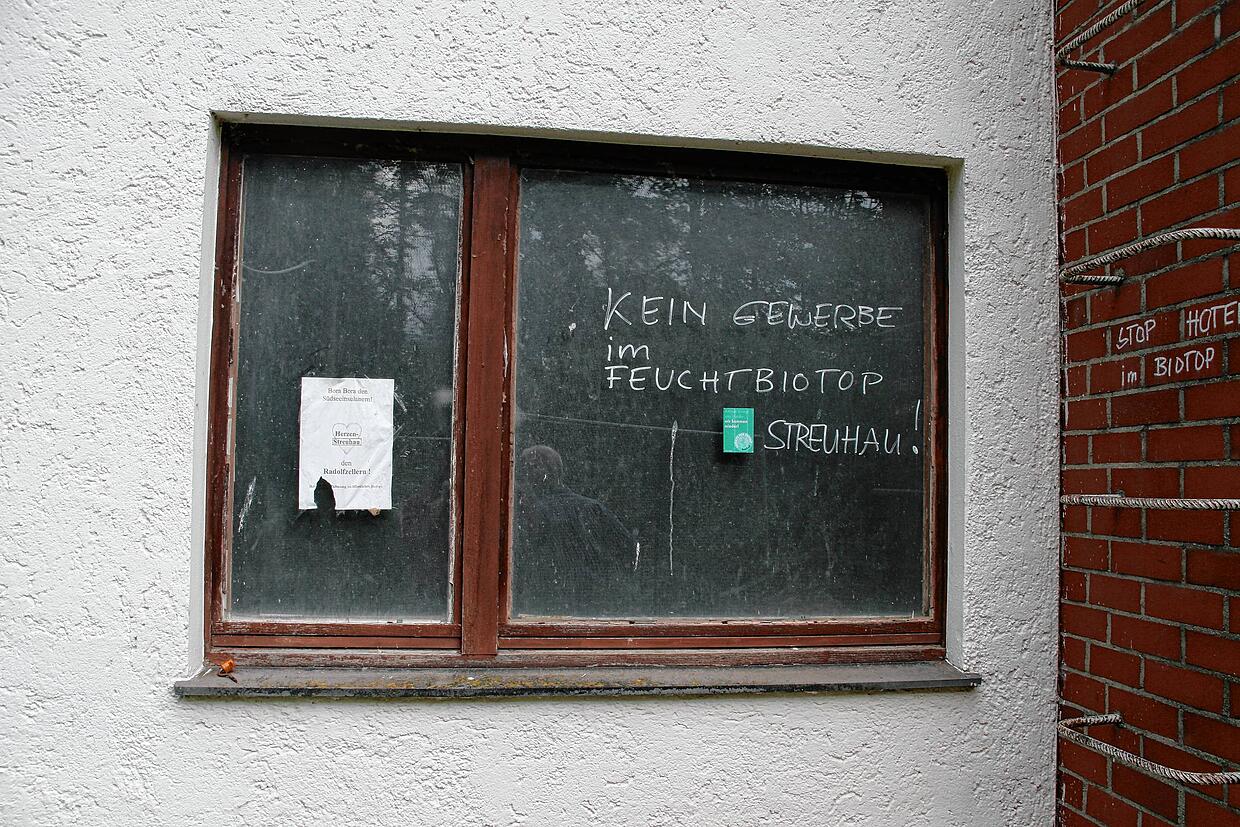 Bora Bora den
Südseeinsulanern!
Herzen-
Streuhau
den
Radolfzellern!
KEIN GEWERBE
im
FEUCHTBIOTOP
STREUHAU!
wir kommen
wieder!
STOP HOTEL
im BIOTOP